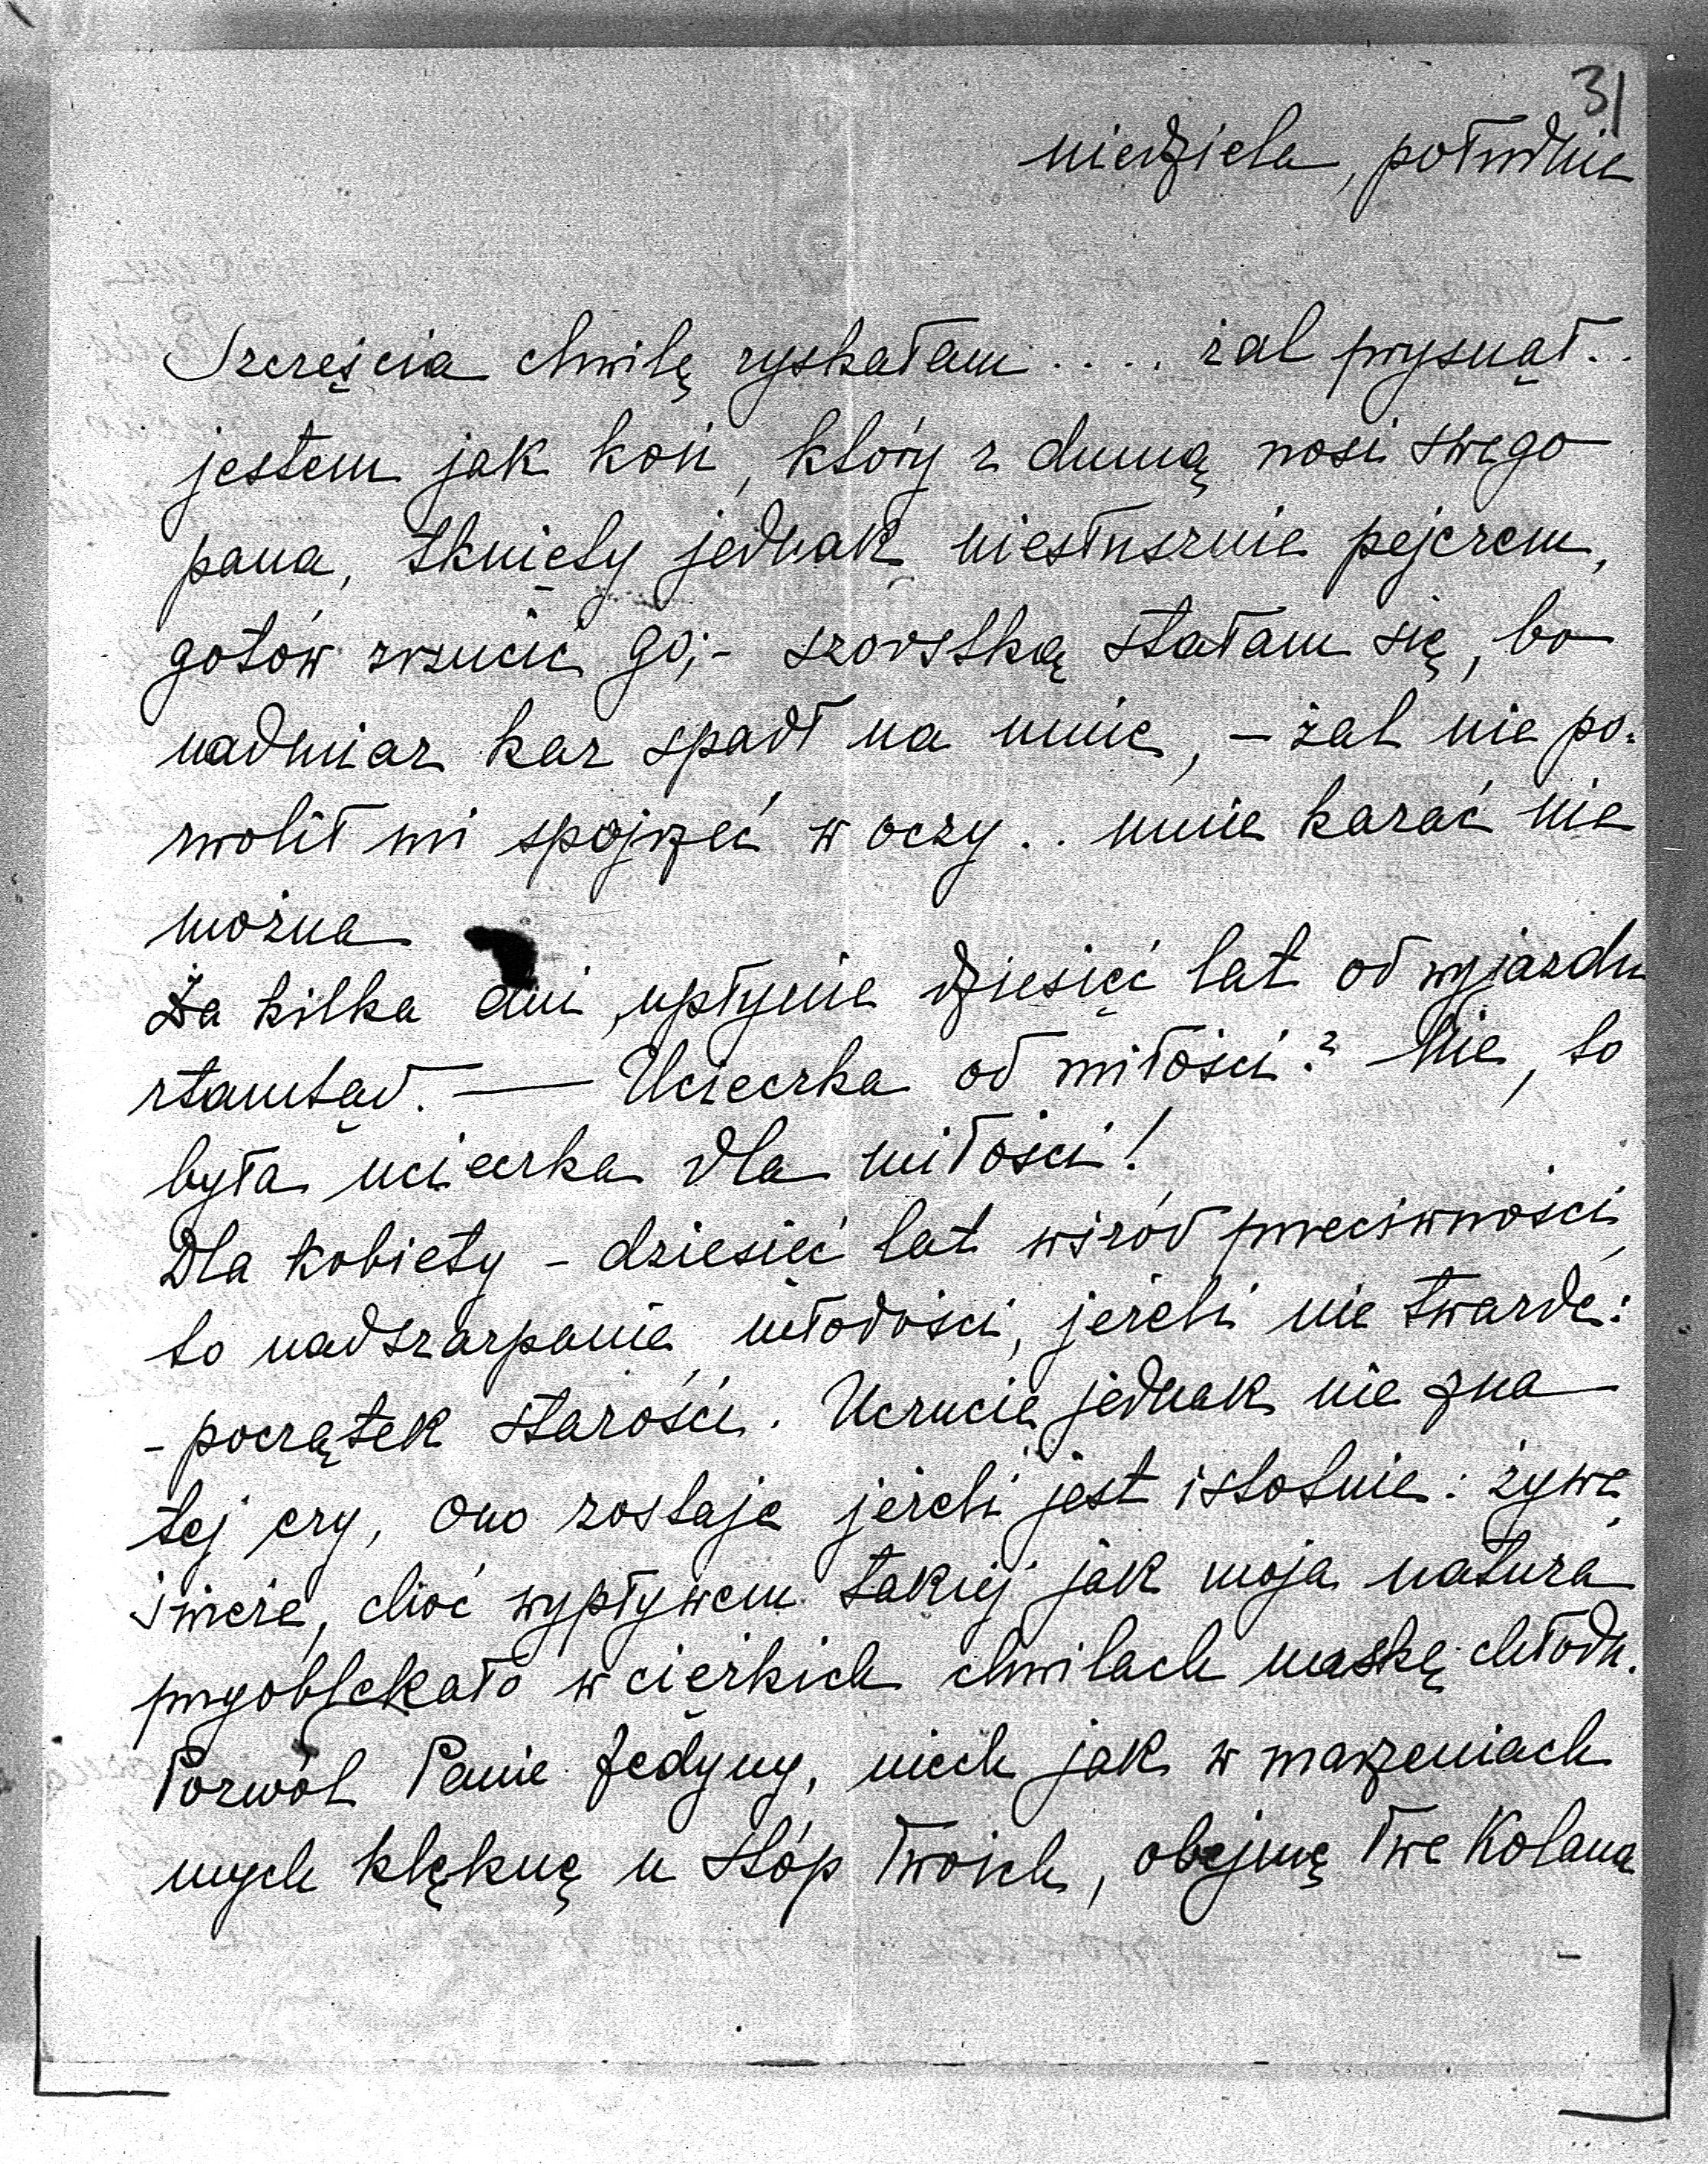 31
niedziela, południe
Szczęścia chwilę zyskałam .... żal prysnął..
jestem jak koń, który z dumą nosi swego
pana, tknięty jednak niesłusznie pejczem,
gotów zrzucić go;- szorstką stałam się, bo
nadmiar kar spadł na mnie, - żal nie po-
zwolił mi spojrzeć w oczy.. mnie karać nie
można
Za kilka dni upłynie dziesięć lat od wyjazdu
stamtąd. — Ucieczka od miłości? Nie, to
była ucieczka dla miłości!
Dla kobiety - dziesięć lat wśród przeciwności,
to nadszarpanie młodości, jeżeli nie twarde:
- początek starości. Uczucie jednak nie zna
tej ery, ono zostaje jeżeli jest istotnie: żywe
i świeże, choć wypływem takiej jak moja natura
przyoblekało w ciężkich chwilach maskę chłodu.
Pozwól Panie Jedyny, niech jak w marzeniach
mych klęknę u stóp Twoich, obejmę Twe Kolana